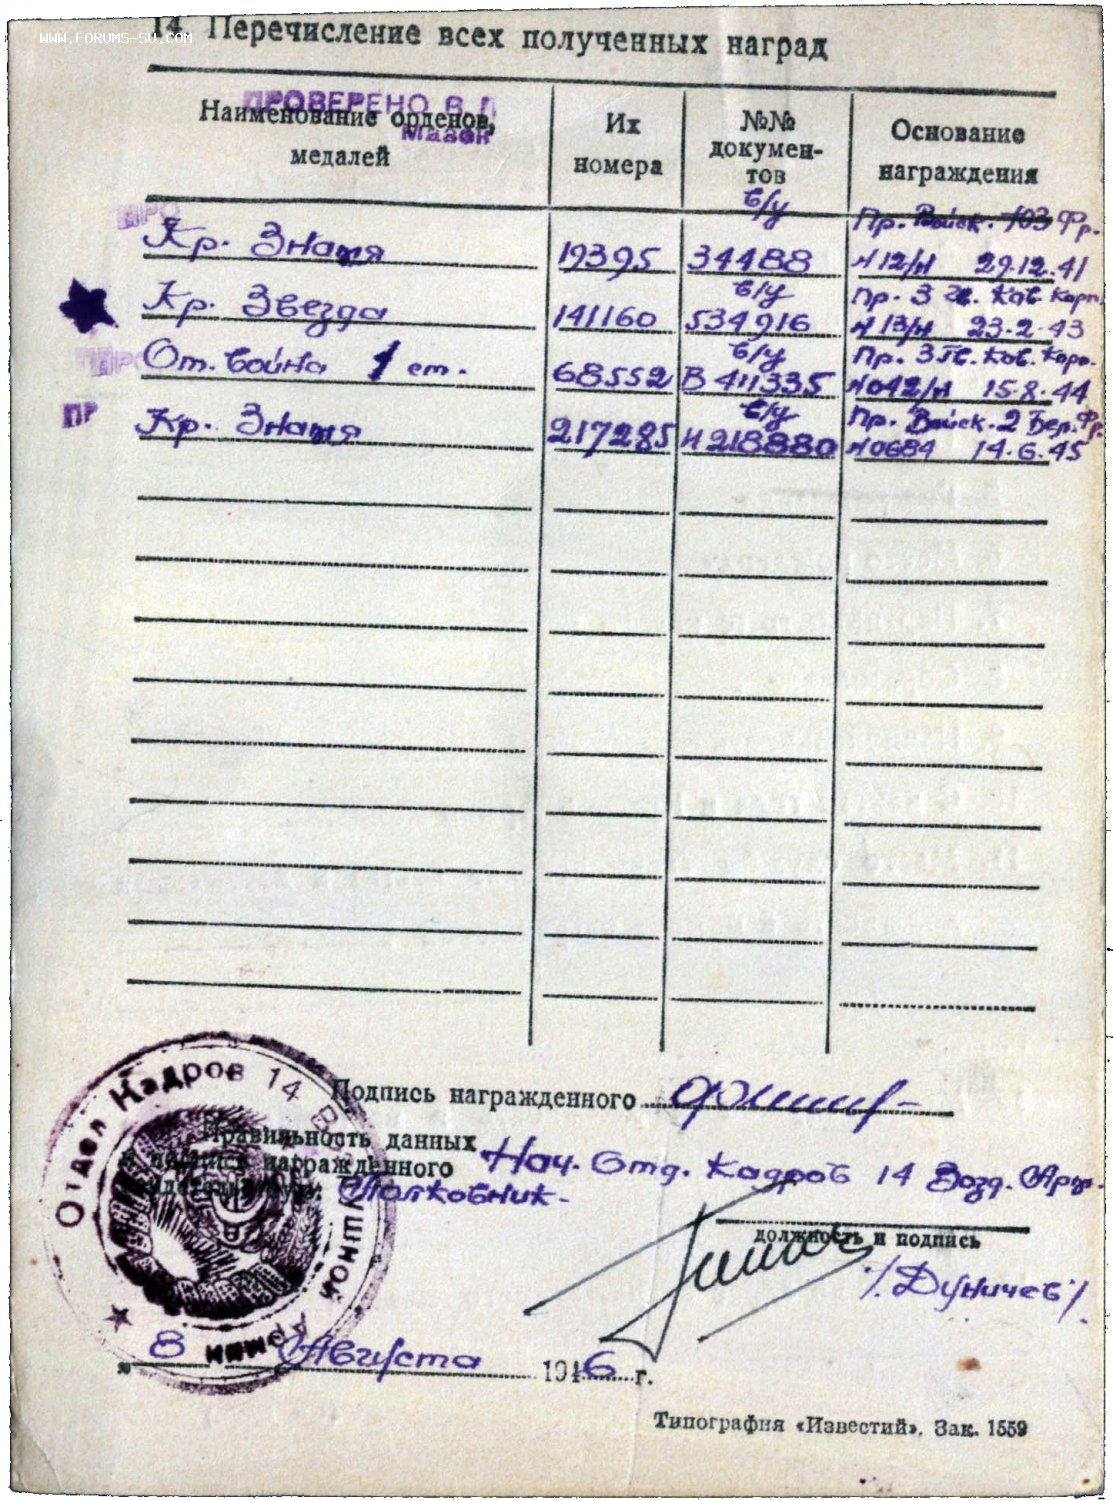 WWW.FORUMS-SU.COM
14 Перечисление всех полученных наград
ПРОВЕРЕНО В Г
Наименование орденов,
медалей
Их
номера
№№
докумен-
тов
Основание
награждения
ПРО
Кр. Знамя 19395 в/у 34488 Пр. Войск. Фр. N 12/н 29.12.41
Кр. Звезда 141160 в/у 534916 Пр. 3 Гв. Кав. Корп. N 13/н 23.2.43
От. война 1 ст. 68552 в/у В 411335 Пр. 3 Гв. Кав. Корп. N 042/н 15.8.44
ПР
Кр. Знамя 217285 в/у И 218880 Пр. Войск. 2 Бел. Фр. N 0684 14.6.45
Подпись награжденного
Правильность данных
и подписи награжденного
Нач. Отд. Кадров 14 Возд. Арм.
Полковник.
должность и подпись
/Дуничев/
8 Августа 1946 г.
Отдел Кадров 14 Воздушной Армии
Типография «Известий». Зак. 1559